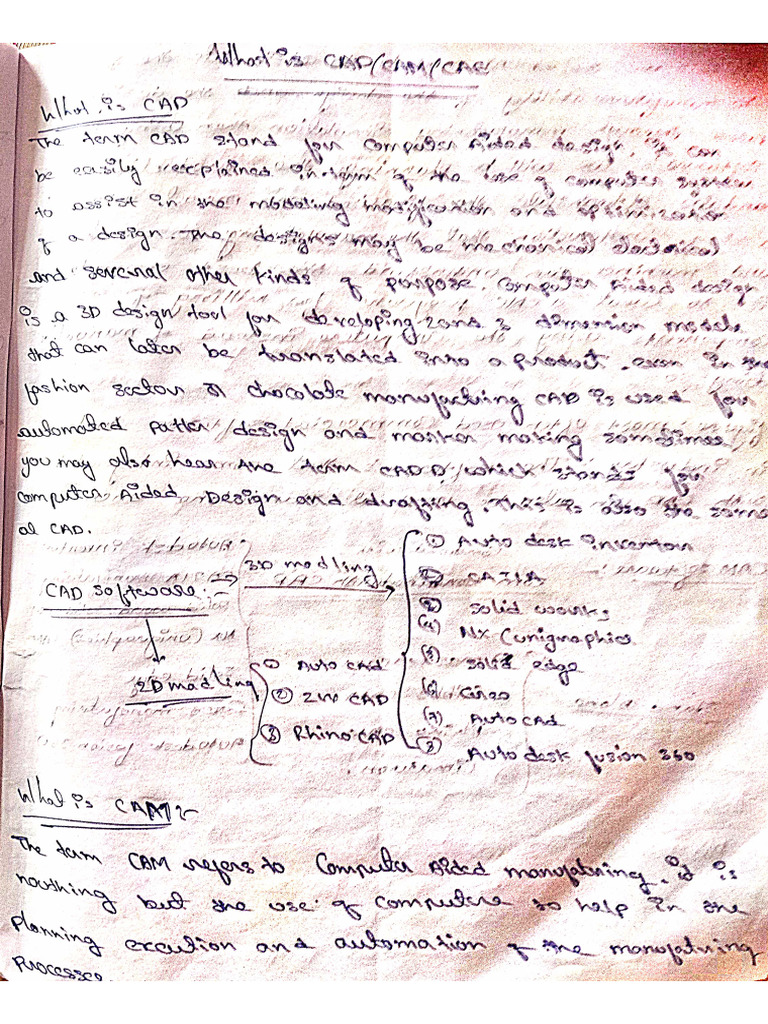 What is CAD/CAM/CAE
What is CAD
The term CAD stand for computer Aided design. it can
be easily explained in term of the use of computer system
to assist in the modeling modification and optimization
of a design. The designs may be mechanical electrical
and several other kinds of purpose. Computer Aided design
is a 3D design tool for developing 2 and 3 dimention models
that can later be translated into a product. even in the
fashion sector or chocolate manufactring CAD is used for
automated patter design and marker making sometimes
you may also hear the term CADD which stands for
computer Aided Design and drafting. This is also the same
al CAD.
CAD software:- 3D modling
① Auto desk inventon
② CATIA
③ Solid works
(4) NX (unigraphics
(5) Solid edge
(6) Creo
(7) AutoCad
(8) Auto desk fusion 360
2D modling
① Auto Cad
② ZWCAD
③ Rhino CAD
What is CAM:-
The term CAM refers to Computer Aided manufatuning. it is
nouthing but the use of computere to help in the
planning excution and automation of the manufatuning
processes.